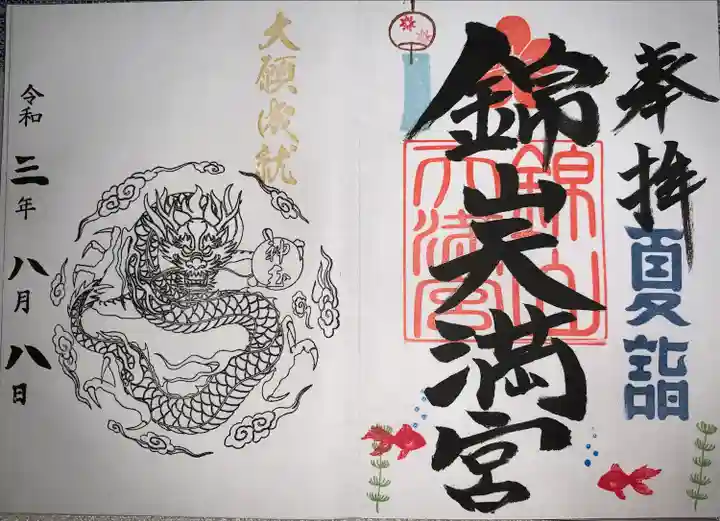 奉拝
夏詣
錦山天満宮
錦山
天満宮
大願成就
神玉
令和三年八月八日